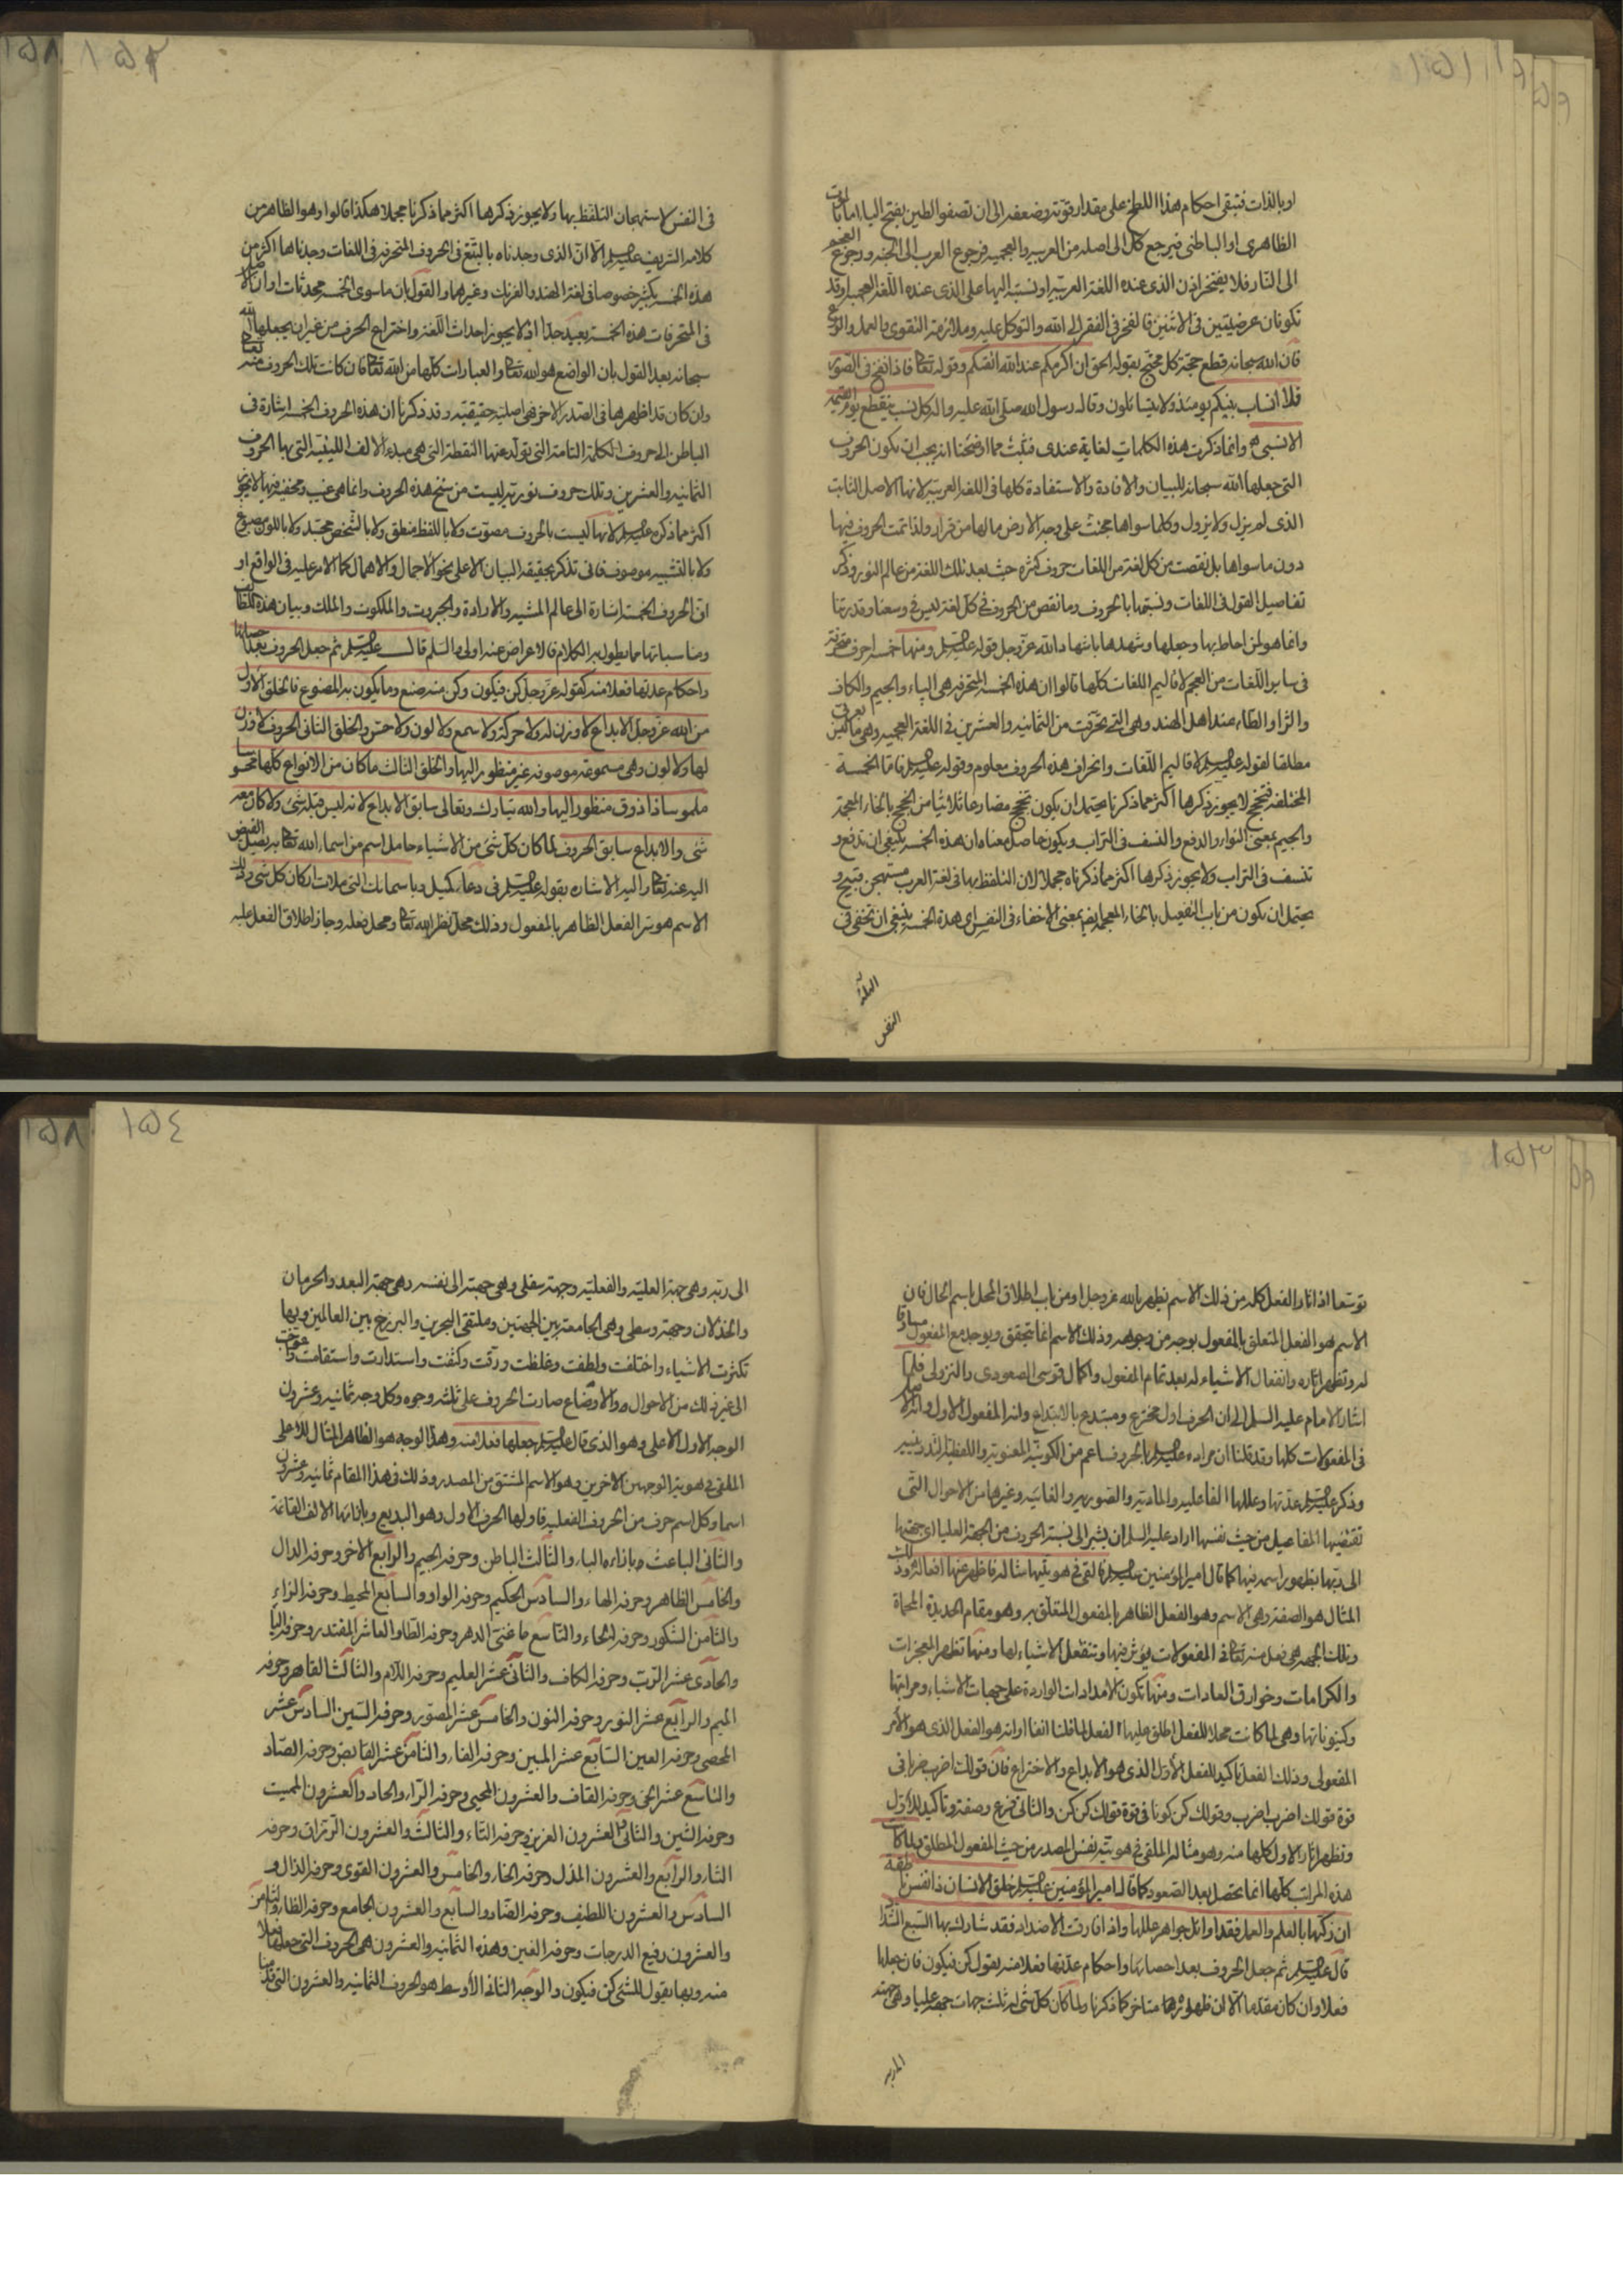 ١٥١
او بالذات فتبقى احكام هذا اللطخ على مقدار قوته وضعفه الى ان تصفو الطين بفتح اليا اما بالموت
الظاهرى او الباطنى فيرجع كل الى اصله من العربيه والعجميه فرجوع العرب الى الجنه ورجوع العجم
الى النار فلا يفتخر اذن الذى عنده اللغة العربيه او نسبته اليها على الذى عنده اللغة العجميه وقد
تكونان عرضيتين فى الاثنين فالفخر فى الفقر الى الله والتوكل عليه وملازمة التقوى بالعمل والورع
فان الله سبحانه قطع حجة كل محتج بقوله الحق ان اكرمكم عند الله اتقيكم وقوله تعالى فاذا نفخ فى الصور
فلا انساب بينكم يومئذ ولا يتسائلون وقال رسول الله صلى الله عليه واله كل نسب ينقطع يوم القيمه
الا نسبى وانما ذكرت هذه الكلمات لغاية عندى فثبت مما اوضحنا انه يجب ان تكون الحروف
التى جعلها الله سبحانه للبيان والافادة والاستفادة كلها فى اللغة العربيه لانها الاصل الثابت
الذى لم يزل ولا يزول وكلما سواها مجتث على وجه الارض مالها من قرار ولذا تمت الحروف فيها
دون ما سواها بل نقصت من كل لغة من اللغات حروف كثيره حيث بعد تلك اللغة من عالم النور وذكر
تفاصيل القول فى اللغات ونسبتها بالحروف وما نقص من الحروف فى كل لغة ليس فى وسعنا وقدرتنا
وانما هو لمن احاط بها وجعلها وشهدها باشهاد الله عز وجل قوله عليه السلم ومنها خمسة احرف متحرفة
فى ساير اللغات من العجم لاقاليم اللغات كلها قالوا ان هذه الخمسه المتحرفه هى الپاء والجيم والكاف
والزا والطاء عند اهل الهند وهى التى تحرفت من الثمانيه والعشرين فى اللغة العجميه وهى ما ليس بعربى
مطلقا لقوله عليه السلم لاقاليم اللغات وانحراف هذه الحروف معلوم وقوله عليه السلم فاما الخمسة
المختلفه فتجخ لا يجوز ذكرها اكثر مما ذكرنا يحتمل ان يكون تجخ مضارعا ثلاثيا من الجخ بالخاء المعجمة
والجيم بمعنى التوار والدفع والنسف فى التراب ويكون حاصل معناه ان هذه الخمسه ينبغى ان تدفع و
تنسف فى التراب ولا يجوز ذكرها اكثر مما ذكرناه مجملا لان التلفظ بها فى لغة العرب مستهجن قبيح و
يحتمل ان يكون من باب التفعيل بالخاء المعجمه ايضا بمعنى الاخفاء فى النفس اى هذه الخمسه ينبغى ان تخفى فى
النفس
١٥٢
فى النفس لاستهجان التلفظ بها ولا يجوز ذكرها اكثر مما ذكرنا مجملا هكذا قالوا وهو الظاهر من
كلامه الشريف عليه السلم الا ان الذى وجدناه بالتتبع فى الحروف المتحرفه فى اللغات وجدناها اكثر من
هذه الخمسه بكثير خصوصا فى لغة الهند والفرنك وغيرهما والقول بان ماسوى الخمسه محدثات او ان الاصل
فى المتحرفات هذه الخمسه بعيد جدا اذ لا يجوز احداث اللغة واختراع الحرف من غير ان يجعلها الله
سبحانه بعد القول بان الواضع هو الله تعالى والعبارات كلها من الله تعالى فان كانت تلك الحروف منه تعالى
وان كان قد اظهرها فى الصدر الاخر فهى اصلية حقيقيه وقد ذكرنا ان هذه الحروف الخمسه اشارة فى
الباطن الى حروف الكلمة التامة التى تولد عنها النقطة التى هى مبدء الالف اللينية التى بها الحروف
الثمانيه والعشرين وتلك حروف نوريه ليست من سنخ هذه الحروف وانما هى غيب ومخفيه فيها لا يجوز
اكثر مما ذكره عليه السلم لانها ليست بالحروف مصوت ولا باللفظ منطق ولا بالشخص مجسد ولا باللون مصبوغ
ولا بالتشبيه موصوف فافى تذكر بحقيقة البيان الاعلى نحو الاجمال والاهمال كما الامر عليه فى الواقع او
ان الحروف الخمسه اشارة الى عالم المشيه والارادة والجبروت والملكوت والملك وبيان هذه
ومناسباتها مما يطول به الكلام فالاعراض عنه اولى والسلم قال عليه السلم ثم جعل الحروف بعد احصائها
واحكام عدتها فعلا منه كقوله عز وجل كن فيكون وكن منه صنع وما يكون به المصنوع فالخلق الاول
من الله عز وجل الابداع لا وزن له ولا حركة ولا سمع ولا لون ولا حس والخلق الثانى الحروف لا وزن
لها ولا لون وهى مسموعة موصوفة غير منظور اليها والخلق الثالث ماكان من الانواع كلها محسوسا
ملموسا ذا ذوق منظورا اليها والله تبارك وتعالى سابق الابداع لانه ليس قبله شئ ولا كان معه
شئ والابداع سابق الحروف لما كان كل شئ من الاشياء حامل اسم من اسماء الله تعالى به يصل الفيض
اليه عنه تعالى واليه الاشاره بقوله عليه السلم فى دعاء كميل وباسمائك التى ملات اركان كل شئ وذلك
الاسم هو سر الفعل الظاهر بالمفعول وذلك محل نظر الله تعالى ومحل فعله وجاز اطلاق الفعل عليه
١٥٣
توسعا اذ اثار الفعل كله من ذلك الاسم تظهر بالله عز وجل او من باب اطلاق المحل باسم الحال فان
الاسم هو الفعل المتعلق بالمفعول بوجه من وجوهه وذلك الاسم انما يتحقق ويوجد مع المفعول مساوقا
له وتظهر اثاره وانفعال الاشياء له بعد تمام المفعول واكمال قوسى الصعودى والنزولى فلما
اشار الامام عليه السلم الى ان الحرف اول مخترع ومبتدع بالابتداع وانه المفعول الاول وانه الاصل
فى المفعولات كلها وقد قلنا ان مراده عليه السلم بالحروف ما عم من الكونية المعنويه واللفظيه
وذكر عليه السلم عدتها وعللها الفاعليه والماديه والصوريه والغائيه وغيرها من الاحوال التى
تقتضيها المفاعيل من حيث نفسها اراد عليه السلم ان يشير الى نسبة الحروف من الجهة العليا اى جهتها
الى ربها بظهور اسمه فيها كما قال امير المؤمنين عليه السلم فالقى فى هويتها مثاله فاظهر عنها افعاله وذلك
المثال هو الصفة وهى الاسم وهو الفعل الظاهر بالمفعول المتعلق به وهو مقام الحديدة المحماة
وتلك الجهه هى فعل منه تعالى فى المفعولات يؤثر فيها وتنفعل الاشياء لها ومنها تظهر المعجزات
والكرامات وخوارق العادات ومنها تكون الامدادات الواردة على جهات الاشياء ومراتبها
وكينوناتها وهى لما كانت محلا للفعل اطلق عليها الفعل لما قلنا انفا او انه هو الفعل الذى هو الامر
المفعولى وذلك الفعل تاكيد للفعل الاول الذى هو الابداع والاختراع فان قولك اضرب ضربا فى
قوة قولك اضرب اضرب وقولك كن كونا فى قوة قولك كن كن والثانى فرع وصفة وتاكيد للاول
وتظهر اثار الاول كلها منه وهو مثاله الملقى فى هوية نفس المصدر من حيث المفعول المطلق ولما كانت
هذه المراتب كلها انما تحصل بعد الصعود كما قال امير المؤمنين عليه السلم خلق الانسان ذا نفس ناطقة
ان زكيها بالعلم والعمل فقد اوائل جواهر عللها واذا فارقت الاضداد فقد شارك بها السبع الشداد
قال عليه السلم ثم جعل الحروف بعد احصائها واحكام عدتها فعلا منه يقول كن فيكون فان جعلها
فعلا وان كان مقدما الا ان ظهور اثرها متاخر كما ذكرنا ولما كان كل شئ له ثلث جهات جهه عليا وهى جهته
١٥٤
الى ربه وهى جهة العلية والفعليه وجهة سفلى وهى جهته الى نفسه وهى جهة البعد والحرمان
والخذلان وجهة وسطى وهى الجامعة بين الجهتين وملتقى البحرين والبرزخ بين العالمين وبها
تكثرت الاشياء واختلفت ولطفت وغلظت ورقت وكثفت واستدارت واستقامت واعوجت
الى غير ذلك من الاحوال والاوضاع صارت الحروف على ثلثه وجوه وكل وجه ثمانيه وعشرون
الوجه الاول الاعلى وهو الذى قال عليه السلم جعلها فعلا منه وهذا الوجه هو الظاهر المثال للاعلى
الملقى فى هوية الوجهين الاخرين وهو الاسم المشتق من المصدر وذلك فى هذا المقام ثمانيه وعشرون
اسما وكل اسم حرف من الحروف الفعليه فاولها الحرف الاول وهو البديع وبازائها الالف القائمة
والثانى الباعث وبازائه الباء والثالث الباطن وحرفه الجيم والرابع الاخر وحرفه الدال
والخامس الظاهر وحرفه الهاء والسادس الحكيم وحرفه الواو والسابع المحيط وحرفه الزاء
والثامن الشكور وحرفه الحاء والتاسع غنى الدهر وحرفه الطا والعاشر المقتدر وحرفه اليا
والحادى عشر الرب وحرفه الكاف والثانى عشر العليم وحرفه اللام والثالث القاهر وحرفه
الميم والرابع عشر النور وحرفه النون والخامس عشر المصور وحرفه السين السادس عشر
المحصى وحرفه العين السابع عشر المبين وحرفه الفاء والثامن عشر القابض وحرفه الصاد
والتاسع عشر الحى وحرفه القاف والعشرون المحيى وحرفه الراء والحاد والعشرون المميت
وحرفه الشين والثانى والعشرون العزيز وحرفه التاء والثالث والعشرون الرزاق وحرفه
الثاء والرابع والعشرون المذل وحرفه الخاء والخامس والعشرون القوى وحرفه الذال و
السادس والعشرون اللطيف وحرفه الضاد والسابع والعشرون الجامع وحرفه الظاء والثامن
والعشرون رفيع الدرجات وحرفه الغين وهذه الثمانيه والعشرون هى الحروف التى جعلها فعلا
منه وبها يقول للشئ كن فيكون والوجه الثانى الأوسط هو الحروف الثمانيه والعشرون التى